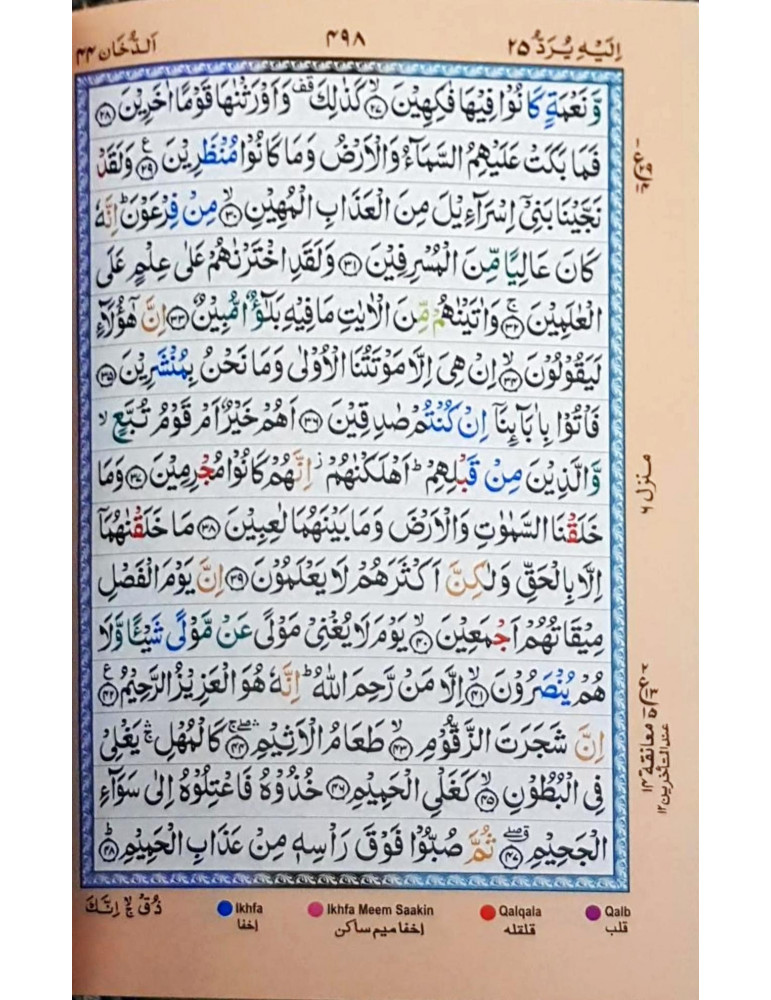 اِلَيْهِ يُرَدُّ ٢٥
٤٩٨
اَلدُّخَان ٤٤
وَّنَعْمَةٍ كَانُوْا فِيْهَا فٰكِهِيْنَ ۙ﴿٢٧﴾ كَذٰلِكَ ۫ وَاَوْرَثْنٰهَا قَوْمًا اٰخَرِيْنَ ﴿٢٨﴾
فَمَا بَكَتْ عَلَيْهِمُ السَّمَآءُ وَالْاَرْضُ وَمَا كَانُوْا مُنْظَرِيْنَ ﴿٢٩﴾ۧ وَلَقَدْ
نَجَّيْنَا بَنِيْٓ اِسْرَآءِيْلَ مِنَ الْعَذَابِ الْمُهِيْنِ ۙ﴿٣٠﴾ مِنْ فِرْعَوْنَ ؕ اِنَّهٗ
كَانَ عَالِيًا مِّنَ الْمُسْرِفِيْنَ ﴿٣١﴾ وَلَقَدِ اخْتَرْنٰهُمْ عَلٰى عِلْمٍ عَلَى
الْعٰلَمِيْنَ ۚ﴿٣٢﴾ وَاٰتَيْنٰهُمْ مِّنَ الْاٰيٰتِ مَا فِيْهِ بَلٰٓؤٌا مُّبِيْنٌ ﴿٣٣﴾ اِنَّ هٰٓؤُلَآءِ
لَيَقُوْلُوْنَ ۙ﴿٣٤﴾ اِنْ هِيَ اِلَّا مَوْتَتُنَا الْاُوْلٰى وَمَا نَحْنُ بِمُنْشَرِيْنَ ﴿٣٥﴾
فَاْتُوْا بِاٰبَآئِنَآ اِنْ كُنْتُمْ صٰدِقِيْنَ ﴿٣٦﴾ اَهُمْ خَيْرٌ اَمْ قَوْمُ تُبَّعٍ ۙ
وَّالَّذِيْنَ مِنْ قَبْلِهِمْ ؕ اَهْلَكْنٰهُمْ ؗ اِنَّهُمْ كَانُوْا مُجْرِمِيْنَ ﴿٣٧﴾ وَمَا
خَلَقْنَا السَّمٰوٰتِ وَالْاَرْضَ وَمَا بَيْنَهُمَا لٰعِبِيْنَ ﴿٣٨﴾ مَا خَلَقْنٰهُمَآ
اِلَّا بِالْحَقِّ وَلٰكِنَّ اَكْثَرَهُمْ لَا يَعْلَمُوْنَ ﴿٣٩﴾ اِنَّ يَوْمَ الْفَصْلِ
مِيْقَاتُهُمْ اَجْمَعِيْنَ ۙ﴿٤٠﴾ يَوْمَ لَا يُغْنِيْ مَوْلًى عَنْ مَّوْلًى شَيْـًٔا وَّلَا
هُمْ يُنْصَرُوْنَ ۙ﴿٤١﴾ اِلَّا مَنْ رَّحِمَ اللّٰهُ ؕ اِنَّهٗ هُوَ الْعَزِيْزُ الرَّحِيْمُ ﴿٤٢﴾ۧ
اِنَّ شَجَرَتَ الزَّقُّوْمِ ۙ﴿٤٣﴾ طَعَامُ الْاَثِيْمِ ﴿٤٤﴾ كَالْمُهْلِ ۚ يَغْلِيْ
فِي الْبُطُوْنِ ۙ﴿٤٥﴾ كَغَلْيِ الْحَمِيْمِ ﴿٤٦﴾ خُذُوْهُ فَاعْتِلُوْهُ اِلٰى سَوَآءِ
الْجَحِيْمِ ﴿٤٧﴾ ثُمَّ صُبُّوْا فَوْقَ رَاْسِهٖ مِنْ عَذَابِ الْحَمِيْمِ ؕ﴿٤٨﴾
منزل ٦
معانقة ١٣
عند المتأخرين ١٢
ذُقْ ۚ اِنَّكَ
Ikhfa
اخفا
Ikhfa Meem Saakin
اخفا میم ساکن
Qalqala
قلقله
Qalb
قلب